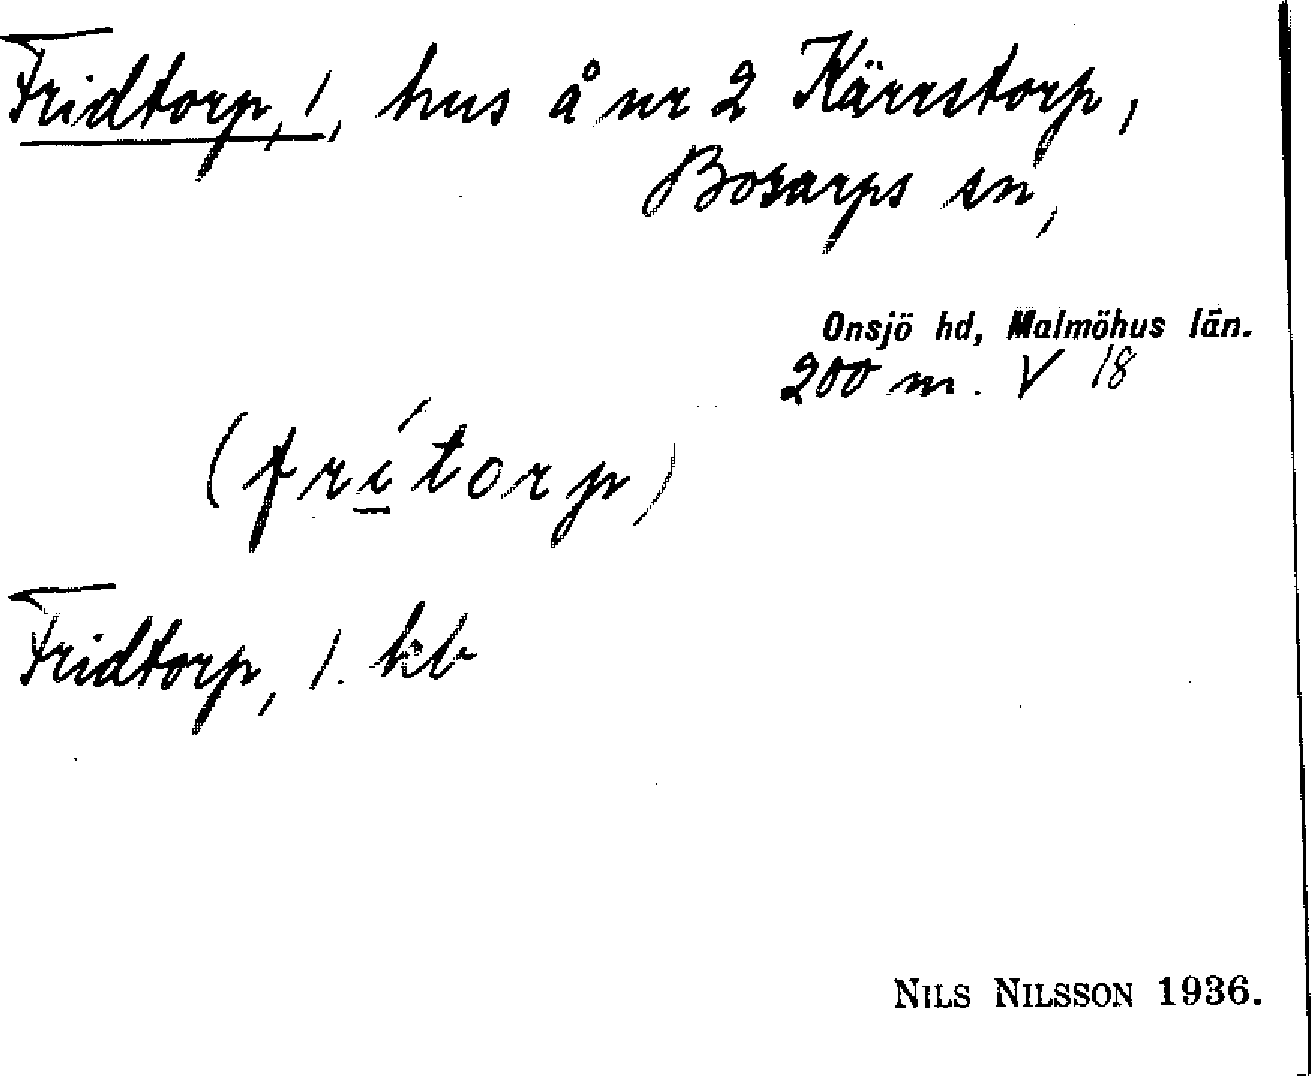 Fridtorp, 1, hus å nr 2 Kärrstorp,
Bosarps sn,
Onsjö hd, Malmöhus län.
200 m. V 18
(frí̲torp)
Fridtorp, 1. kb
NILS NILSSON 1936.